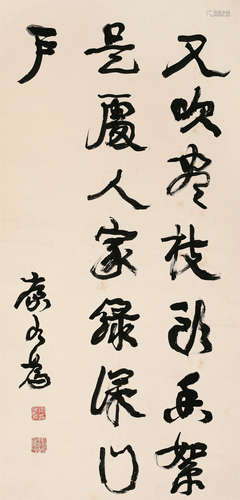 又吹盡枝頭香絮
是處人家綠深門
戶
康有為